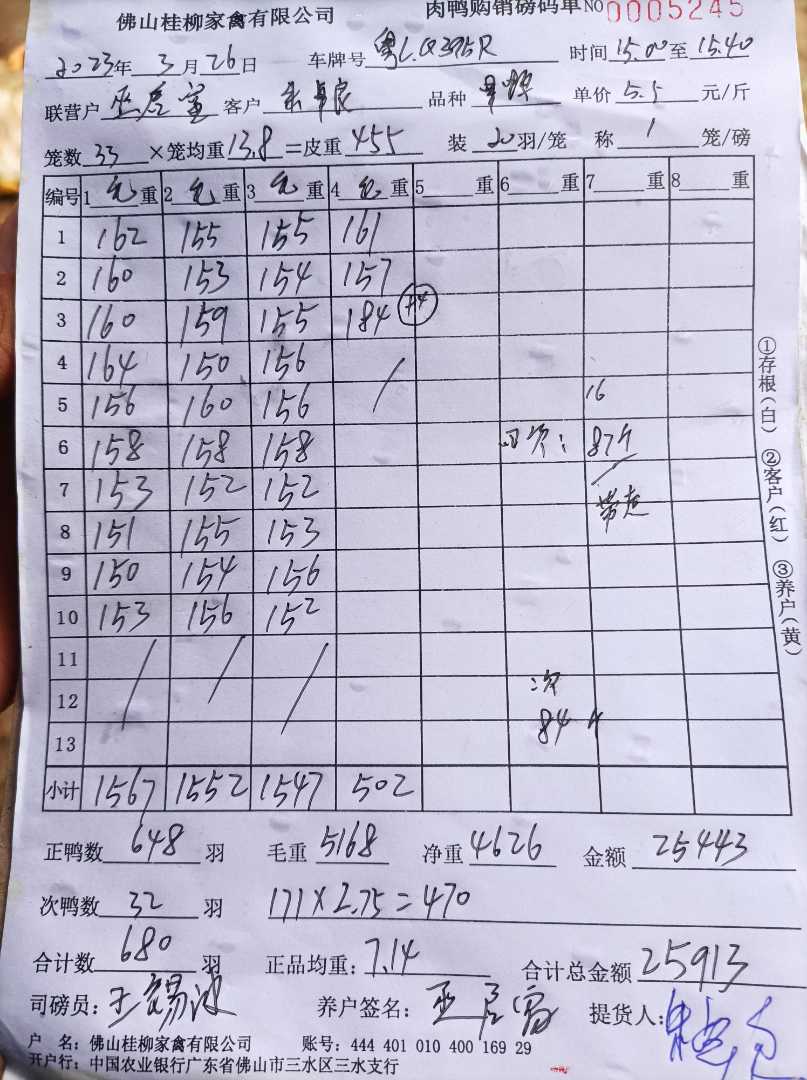 佛山桂柳家禽有限公司 肉鸭购销磅码单 NO 0005245
2023年 3月26日 车牌号 粤L·Q395R 时间15.00至15.40
联营户 客户 品种 单价 5.5 元/斤
笼数 33 ×笼均重 13.8 =皮重 455 装 20 羽/笼 称 1 笼/磅
编号 1 毛 重 2 毛 重 3 毛 重 4 毛 重 5 重 6 重 7 重 8 重
1 162 155 155 161
2 160 153 154 157
3 160 159 155 184 +4
4 164 150 156
5 156 160 156 16
6 158 158 158 : 87斤
7 153 152 152
8 151 155 153 带走
9 150 154 156
10 153 156 152
11
12 二次
13 84斤
小计 1567 1552 1547 502
①存根(白) ②客户(红) ③养户(黄)
正鸭数 648 羽 毛重 5168 净重 4626 金额 25443
次鸭数 32 羽 171×2.75=470
合计数 680 羽 正品均重: 7.14 合计总金额 25913
司磅员: 王锡波 养户签名: 提货人:
户 名: 佛山桂柳家禽有限公司 账号: 444 401 010 400 169 29
开户行: 中国农业银行广东省佛山市三水区三水支行